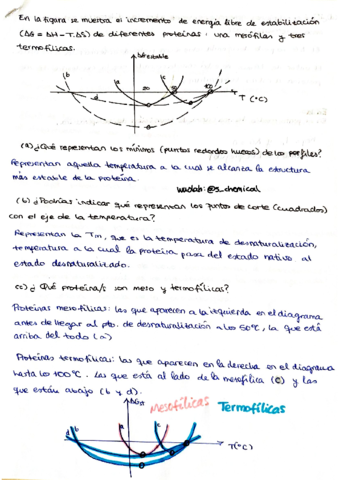 En la figura se muestra el incremento de energía libre de estabilización
(ΔG = ΔH - T.ΔS) de diferentes proteínas: una mesófilas y tres
termofílicas.
ΔG estable
b
a
c
d
50
100
T (°C)
(a) ¿Qué representan los mínimos (puntos redondos huecos) de los perfiles?
Representan aquella temperatura a la cual se alcanza la estructura
más estable de la proteína.
wuolah: @s_chemical
(b) ¿Podrías indicar qué representan los puntos de corte (cuadrados)
con el eje de la temperatura?
Representan la Tm, que es la temperatura de desnaturalización,
temperatura a la cual la proteína pasa del estado nativo al
estado desnaturalizado.
(c) ¿Qué proteína/s son meso y termofílicas?
Proteínas mesofílicas: las que aparecen a la izquierda en el diagrama
antes de llegar al pto. de desnaturalización a los 50°C, la que está
arriba del todo (a)
Proteínas termofílicas: las que aparecen en la derecha en el diagrama
hasta los 100°C. Las que está al lado de la mesofílica (c) y las
que están abajo (b y d).
Mesofílicas Termofílicas
d b
a
c
T(°C)